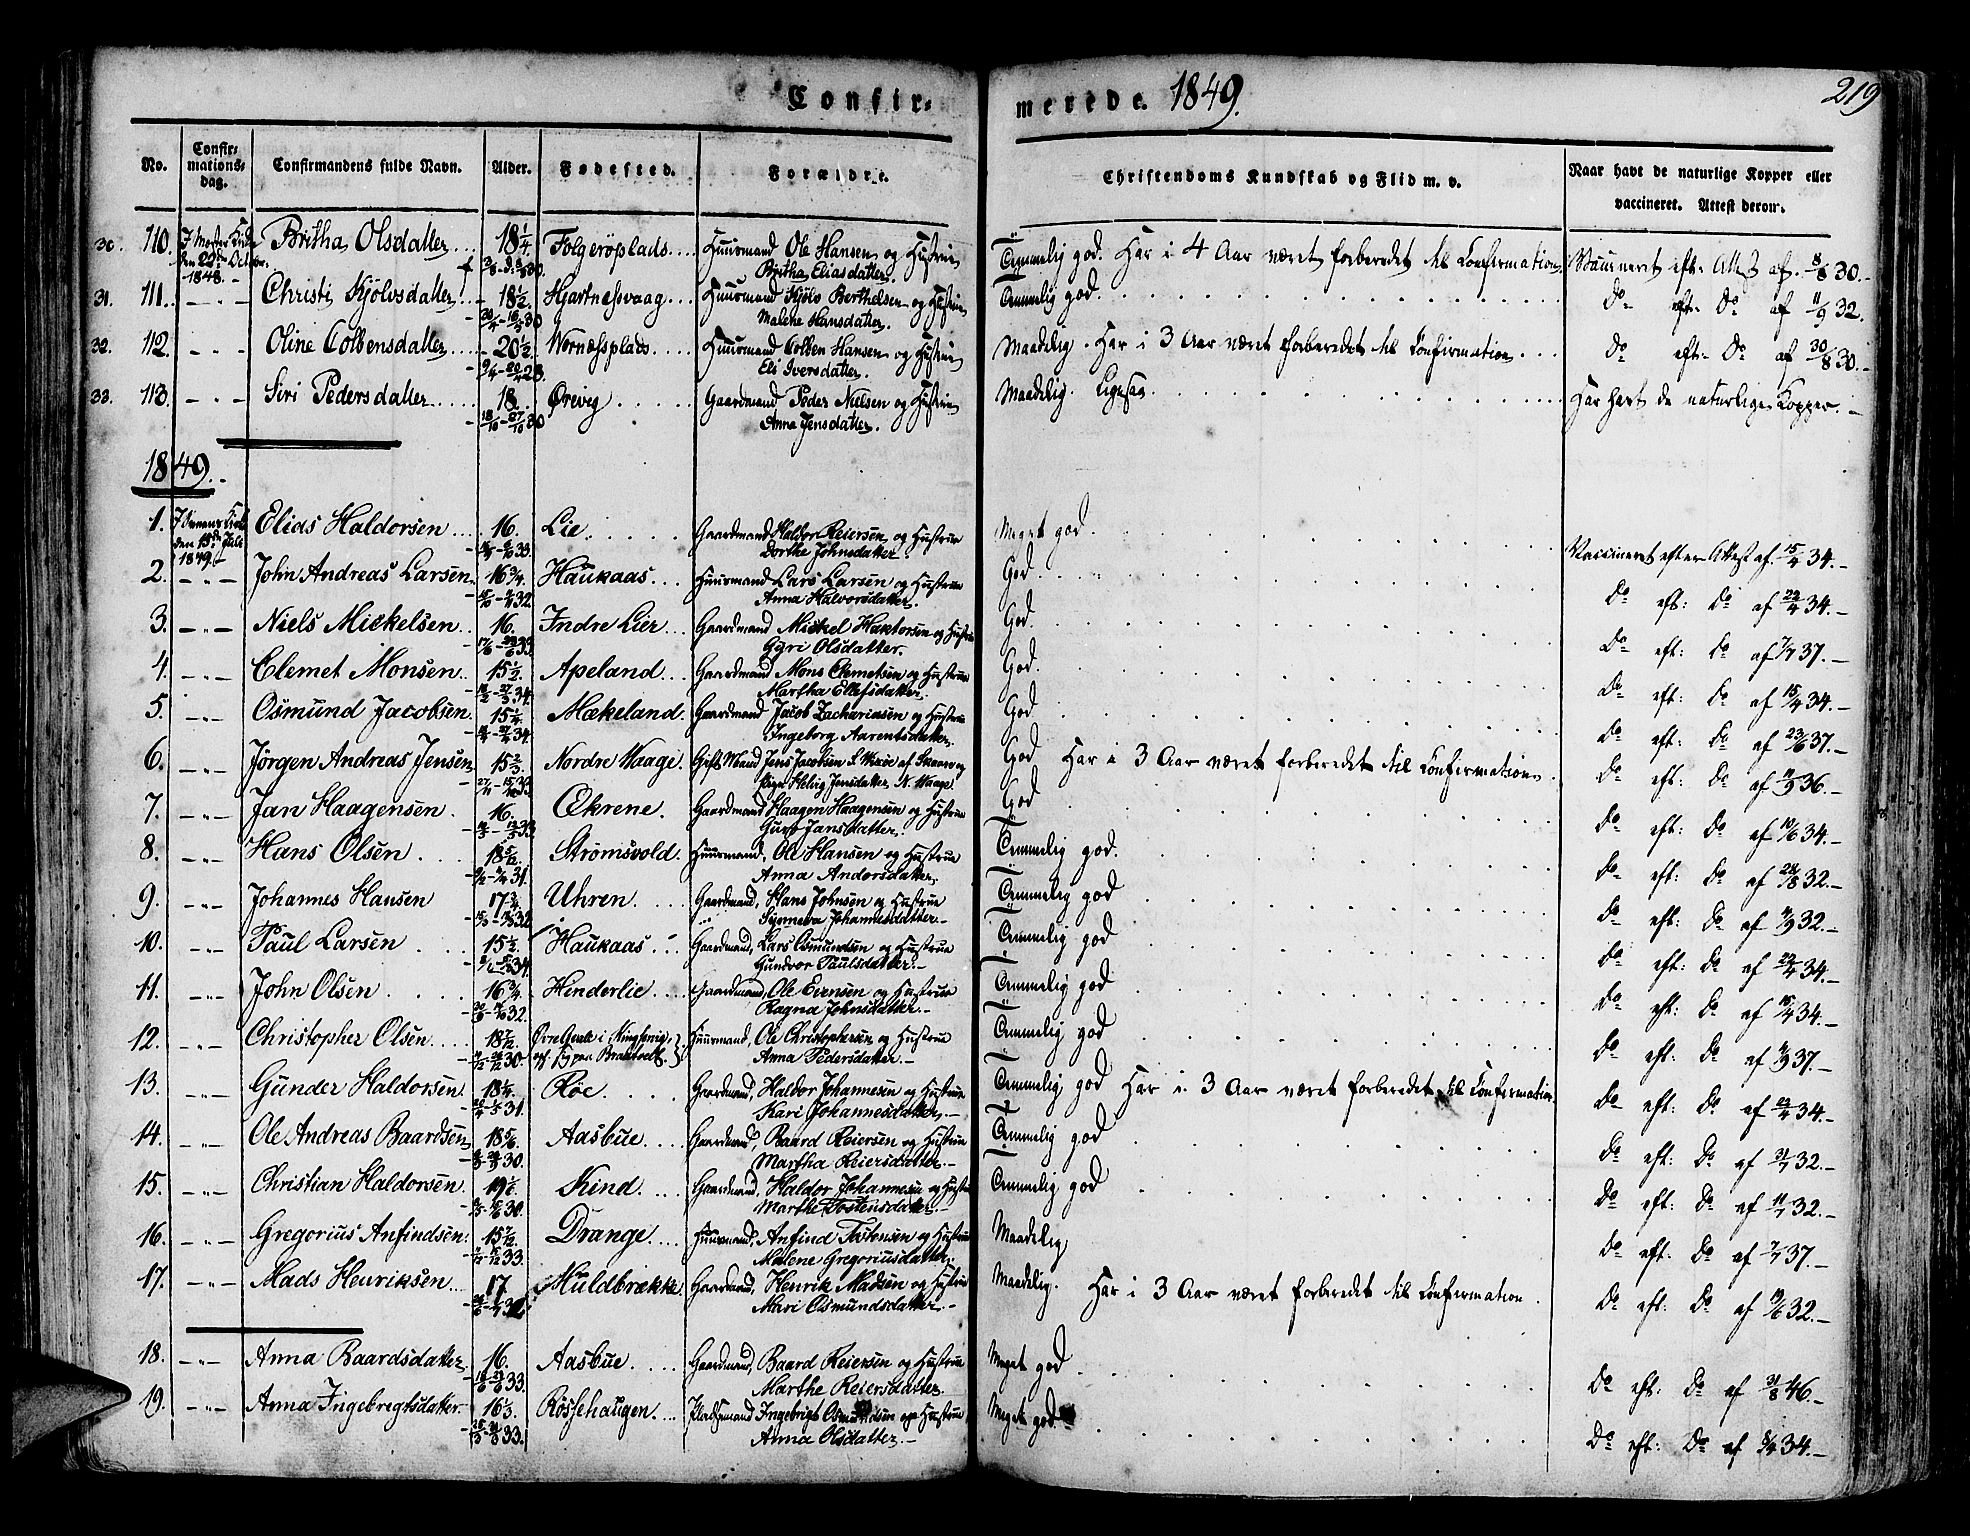 Confirmerede 1849. 219
No. Confirmationsdag. Confirmandens fulde Navn. Alder. Fødested. Forældre. Christendoms Kundskab og Flid m. v. Naar havt de naturlige Kopper eller vaccineret. Attest derom.
30. 110. Britha Olsdatter 18 1/4 Folgeröplads Huusmand Ole Hansen og Hustrue Temmelig god. Har i 4 Aar været forberedet til Confirmation. Vaccineret eft. Attest af 8/8 30.
den 22de Octbr. 1848. Britha Eliasdatter.
31. 111. Christi Kjölvsdatter 18 1/2 Hjartnæssvaag Huusmand Kjölv Berthelsen og Hustrue Temmelig god. Do eft. Do af 11/9 32.
Malene Hansdatter.
32. 112. Oline Colbensdatter 20 1/2 Wernæssplads Huusmand Colben Hansen og Hustrue Maadelig. Har i 3 Aar været forberedet til Confirmation. Do eft. Do af 30/8 30.
Eli Iversdatter.
33. 113. Siri Pedersdatter 18 Ørevig Gaardmand Peder Nielsen og Hustrue Maadelig. Ligesaa Har havt de naturlige Kopper.
18/10 - 27/10 30 Anna Jensdatter.
1849.
1. Elias Haldorsen 16. Lie Gaardmand Haldor Reiersen og Hustrue Meget god. Vaccineret efter Attest af 15/4 34.
den 15de Juli 1849. Dorthe Johnsdatter.
2. John Andreas Larsen 16 3/4 Haukaas Huusmand Lars Larsen og Hustrue God. Do eft: Do af 22/4 34.
Anna Halvorsdatter.
3. Niels Mickelsen 16. Indre Lier Gaardmand Mickel Haktorsen og Hustrue God. Do eft: Do af 7/7 37.
Gyri Olsdatter.
4. Clemet Monsen 15 1/2 Apeland Gaardmand Mons Clemetsen og Hustrue God. Do eft: Do af 15/4 34.
Martha Ellefsdatter.
5. Osmund Jacobsen 15 1/4 Mækeland Gaardmand Jacob Zachariasen og Hustrue God Do eft: Do af 23/6 37.
Ingeborg Aarentsdatter.
6. Jørgen Andreas Jensen 15 2/3 Nordre Waage Gift Mand Jens Jacobsen af Skaare og God Har i 3 Aar været forberedet til Confirmationen. Do eft: Do af 11/9 36.
Pigen Helvig Jensdatter N. Waage
7. Jan Haagensen 16. Økrene Gaardmand Haagen Haagensen og Hustrue God Do eft: Do af 10/6 34.
Guro Jansdatter.
8. Hans Olsen 18 5/12 Strømsvold Huusmand, Ole Hansen og Hustrue Temmelig god. Do eft: Do af 24/8 32.
Anna Andersdatter.
9. Johannes Hansen 17 3/4 Uhren Gaardmand, Hans Johnsen og Hustrue Temmelig god Do eft: Do af 11/9 32.
Synneva Johannesdatter.
10. Paul Larsen 15 1/2 Haukaas Gaardmand, Lars Osmundsen og Hustrue Temmelig god Do eft: Do af 22/4 34.
Gundvor Paulsdatter.
11. John Olsen 16 3/4 Hinderlie Gaardmand, Ole Evensen og Hustrue Temmelig god Do eft: Do af 15/4 34.
Ragna Johnsdatter.
12. Christopher Olsen 18 7/12 Huusmand, Ole Christophersen og Hustrue Temmelig god Do eft: Do af 4/9 37.
Anna Pedersdatter.
13. Gunder Haldorsen 18 1/6 Røe Gaardmand, Haldor Johannesen og Hustrue Temmelig god Har i 3 Aar været forberedet til Confirmation. Do eft: Do af 22/4 34.
Kari Johannesdatter.
14. Ole Andreas Baardsen 18 5/6 Aasbue Gaardmand, Baard Reiersen og Hustrue Temmelig god Do eft: Do af 31/7 32.
Martha Reiersdatter.
15. Christian Haldorsen 19 1/6 Kind Gaardmand, Haldor Johannesen og Hustrue Temmelig god Do eft: Do af 11/7 32.
Marthe Tostensdatter.
16. Gregorius Anfindsen 15 7/12 Drange Huusmand, Anfind Tostensen og Hustrue Maadelig Do eft: Do af 7/7 37.
Malene Gregoriusdatter.
17. Mads Henriksen 17 Muldbrække Gaardmand, Henrik Madsen og Hustrue Maadelig. Har i 3 Aar været forberedet til Confirmation. Do eft: Do af 19/6 32.
Mari Osmundsdatter.
18. Anna Baardsdatter 16. Aasbue Gaardmand, Baard Reiersen og Hustrue Meget god Do eft: Do af 31/8 46.
Marthe Reiersdatter
19. Anna Ingebregtsdatter 16 1/3 Røssehaugen Pladsemand Ingebrigt Osmundsen og Hustrue Meget god Do eft: Do af 8/4 34.
Anna Olsdatter.